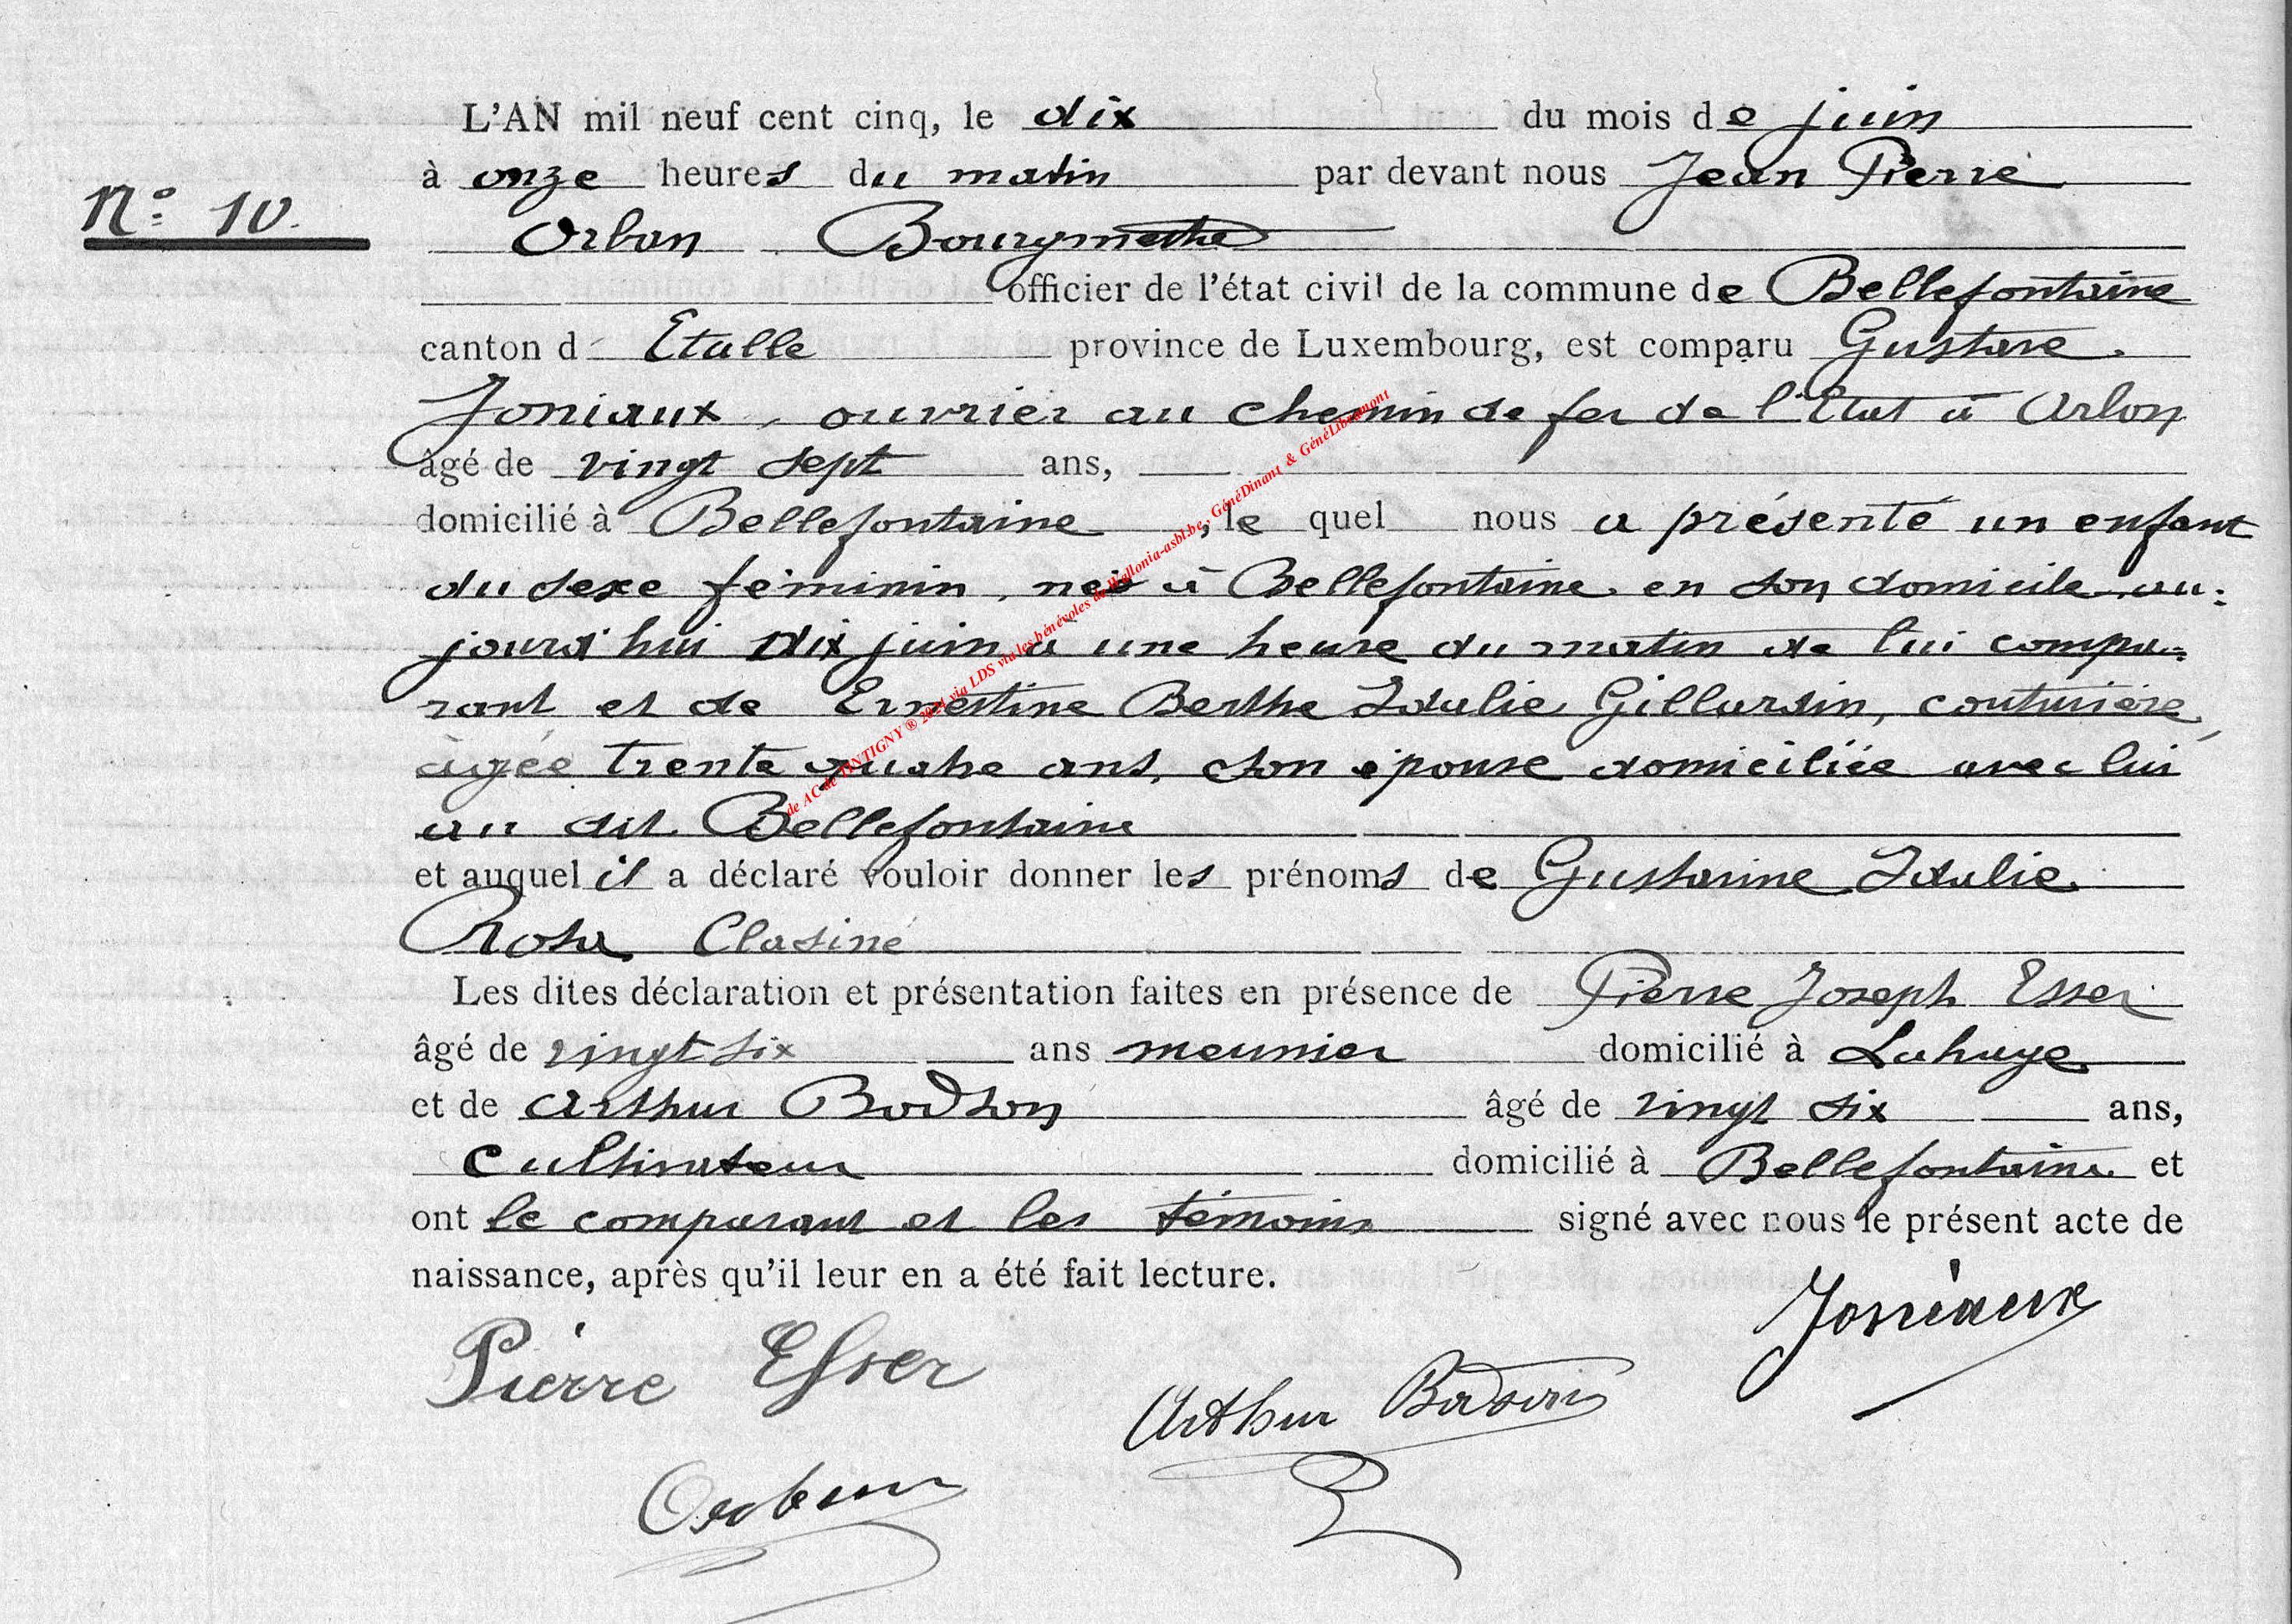 L'AN mil neuf cent cinq, le dix du mois de juin
à onze heures du matin par devant nous Jean Pierre
N° 10.
Orban Bourgmestre
officier de l'état civil de la commune de Bellefontaine
canton d Etalle province de Luxembourg, est comparu Gustave
Joniaux, ouvrier au chemin de fer de l'Etat à Arlon
âgé de vingt sept ans,
domicilié à Bellefontaine, le quel nous a présenté un enfant
du sexe féminin, née à Bellefontaine en son domicile au=
jourd'hui dix juin à une heure du matin de lui compa=
rant et de Ernestine Berthe Idulie Gillardin, couturière,
âgée trente quatre ans, son épouse domiciliée avec lui
au dit Bellefontaine
et auquel il a déclaré vouloir donner les prénoms de Gustavine Idulie
Rosa Clasine
Les dites déclaration et présentation faites en présence de Pierre Joseph Esser
âgé de vingt six ans meunier domicilié à Lahage
et de Arthur Bodson âgé de vingt six ans,
cultivateur domicilié à Bellefontaine et
ont le comparant et les témoins signé avec nous le présent acte de
naissance, après qu'il leur en a été fait lecture.
Joniaux
Pierre Esser
Arthur Bodson
Orban
de AC de TINTIGNY ® 2024 via LDS via les bénévoles de Wallonia-asbl.be, GénéDinant & GénéLibramont